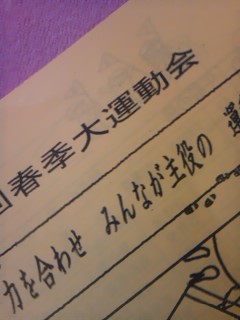 回春季大運動会
力を合わせ みんなが主役の 運